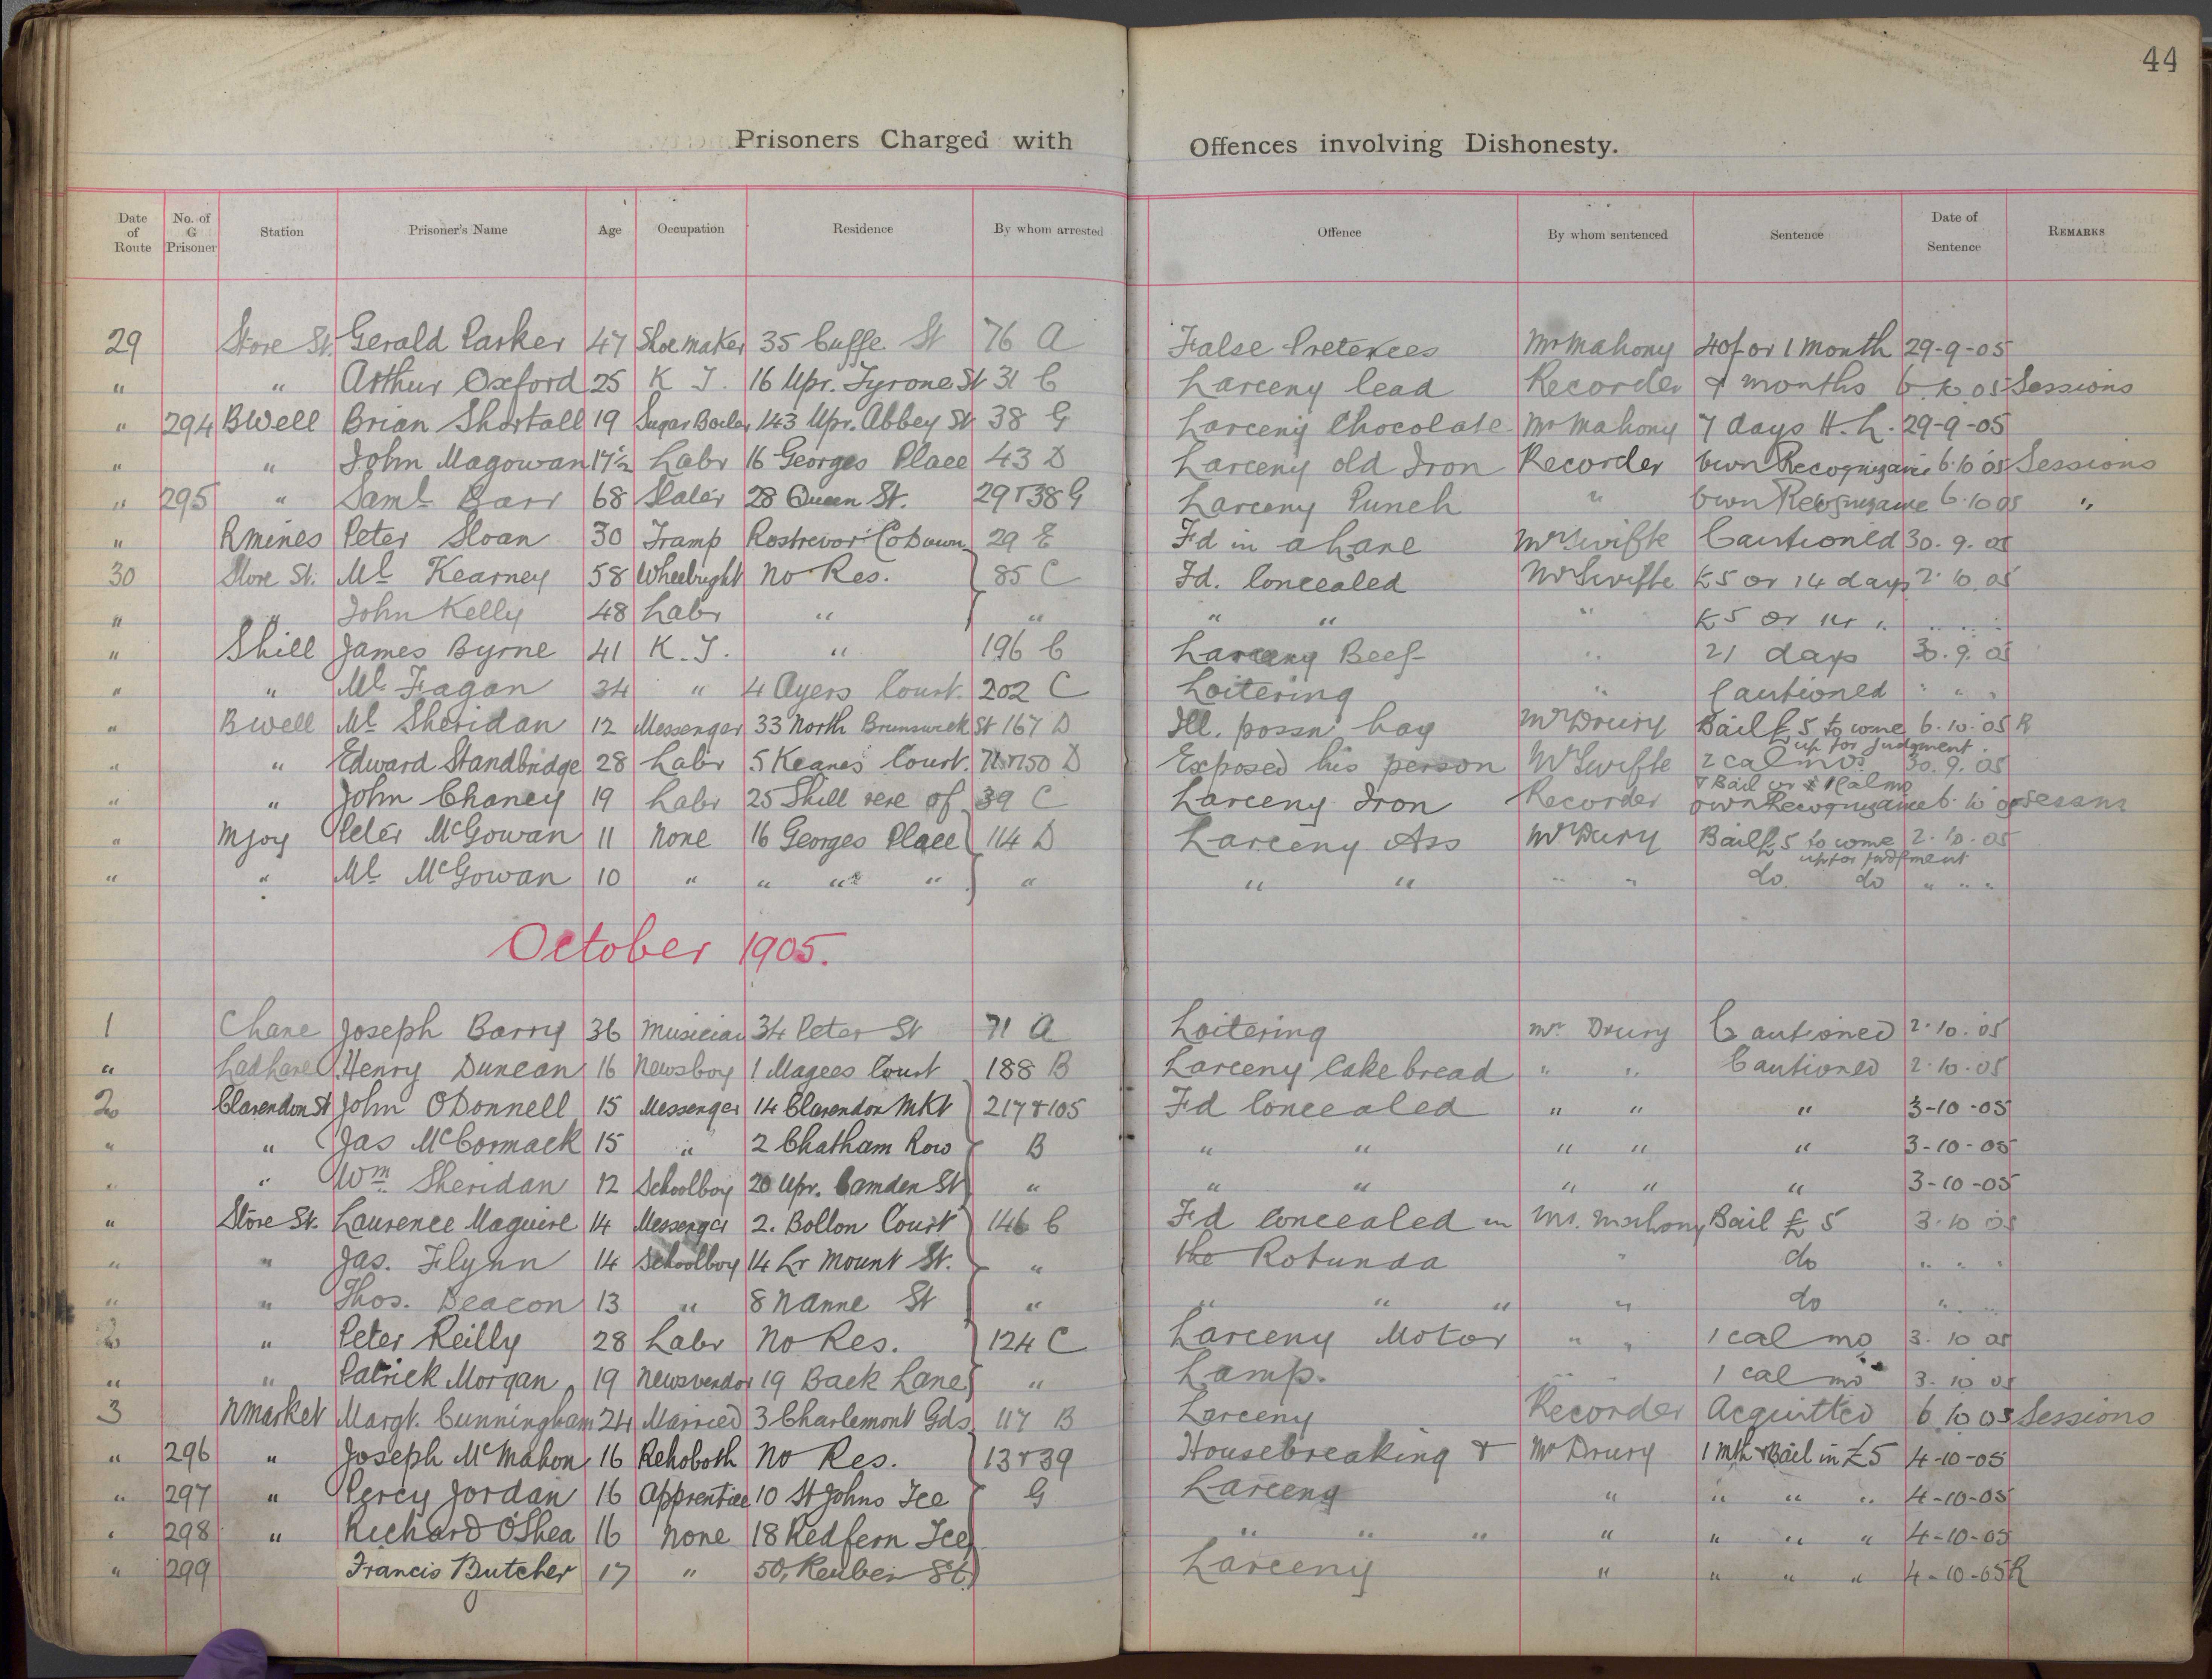 44
Prisoners Charged with Offences involving Dishonesty.
Date of Route No. of G Prisoner Station Prisoner's Name Age Occupation Residence By whom arrested Offence By whom sentenced Sentence Date of Sentence REMARKS
29 Store St. Gerald Parker 47 Shoemaker 35 Cuffe St 76 A False Pretences Mr Mahony 40/- or 1 Month 29-9-05
" " Arthur Oxford 25 K T. 16 Upr. Tyrone St 31 C Larceny lead Recorder months 6.10.05 Sessions
" 294 BWell Brian Shortall 19 Sugar Boiler 143 Upr. Abbey St 38 G Larceny Chocolate Mr Mahony 7 days H.L. 29-9-05
" " John Magowan 17½ Labr 16 Georges Place 43 D Larceny old Iron Recorder Own Recognizance 6.10.05 Sessions
" 295 " Saml Barr 68 Slater 28 Queen St. 29 & 38 G Larceny Punch " Own Recognizance 6.10.05 "
" Rmines Peter Sloan 30 Tramp Rostrevor Co Down 29 E Fd in a Lane Mr Swifte Cautioned 30.9.05
30 Store St. Ml Kearney 58 Wheelright No Res. } 85 C Fd. Concealed Mr Swifte £5 or 14 days 2.10.05
" " John Kelly 48 Labr " " " " " £5 or 14 " " " "
" Shill James Byrne 41 K.T. " 196 C Larceny Beef " 21 days 30.9.05
" " Ml Fagan 34 " 4 Ayers Court. 202 C Loitering " Cautioned " " "
" Bwell Ml Sheridan 12 Messenger 33 North Brunswick St 167 D Ill. possn hay Mr Drury Bail £5 to come up for Judgment 6.10.05 R
" " Edward Standbridge 28 Labr 5 Keanes Court. D Exposed his person Mr Swifte 2 cal mos. & Bail or 1 Cal mo 30.9.05
" " John Chaney 19 Labr 25 Shill rere of 39 C Larceny Iron Recorder own Recognizance 6.10.05 Sessns
" Mjoy Peter McGowan 11 None 16 Georges Place } 114 D Larceny Ass Mr Drury Bail £5 to come up for judgment 2.10.05
" " Ml McGowan 10 " " " " } " " " " " do do " " "
October 1905.
1 Chane Joseph Barry 36 Musician 34 Peter St 71 A Loitering Mr Drury Cautioned 2.10.05
" Ladlane Henry Duncan 16 Newsboy 1 Magees Court 188 B Larceny Cake bread " " Cautioned 2.10.05
2 Clarendon St John ODonnell 15 Messenger 14 Clarendon Mkt } 217 & 105 Fd Concealed " " " 3-10-05
" " Jas McCormack 15 " 2 Chatham Row } B " " " " " 3-10-05
" " Wm Sheridan 12 Schoolboy 20 Upr. Camden St } " " " " " " 3-10-05
" Store St. Laurence Maguire 14 Messenger 2. Bollon Court } 146 C Fd Concealed in Mr. Mahony Bail £5 3.10.05
" " Jas. Flynn 14 Schoolboy 14 Lr Mount St. } " the Rotunda " do " " "
" " Thos. Deacon 13 " 8 N Anne St } " " " " " do " "
2 " Peter Reilly 28 Labr No Res. } 124 C Larceny Motor " " 1 cal mo 3.10.05
" " Patrick Morgan 19 Newsvendor 19 Back Lane } " Lamp. " " 1 cal mo 3.10.05
3 Nmarket Margt. Cunningham 24 Married 3 Charlemont Gds 117 B Larceny Recorder Acquitted 6.10.05 Sessions
" 296 " Joseph McMahon 16 Rehoboth No Res. } 13 & 39 Housebreaking & Mr Drury 1 Mth & Bail in £5 4-10-05
" 297 " Percy Jordan 16 Apprentice 10 St Johns Tce } G Larceny " " " " 4-10-05
" 298 " Richard O'Shea 16 None 18 Redfern Tce } " " " " " " " 4-10-05
" 299 Francis Butcher 17 " 50, Reuben St. } Larceny " " " " 4-10-05 R